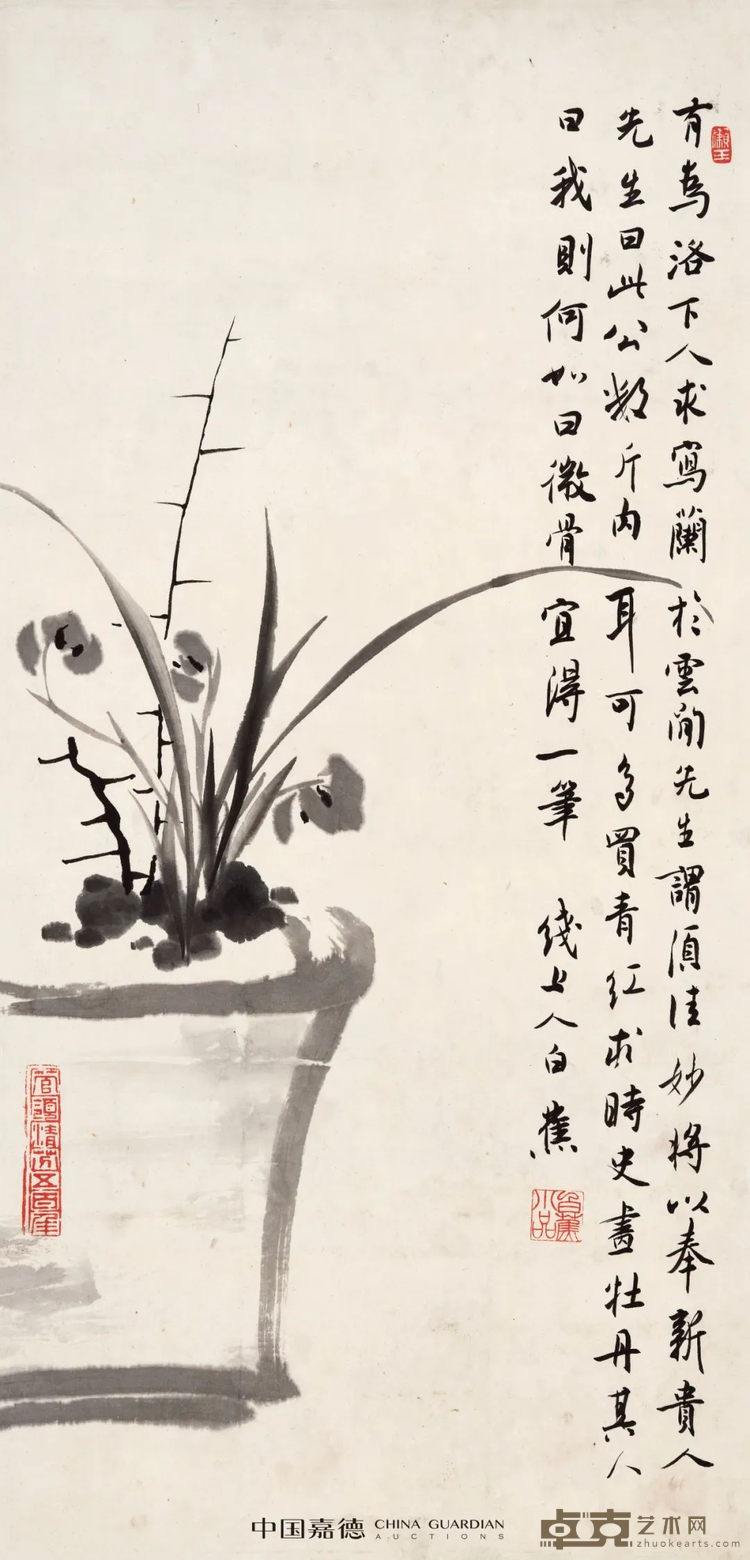 有為洛下人求寫蘭於雲間先生謂須佳妙將以奉新貴人
先生曰此公數斤肉耳可多買青紅求時史畫牡丹其人
曰我則何如曰微骨宜得一筆 綫上人白蕉
白蕉小品
管領清芬五百年
中国嘉德 CHINA GUARDIAN
AUCTIONS
卓克艺术网
zhuokearts.com